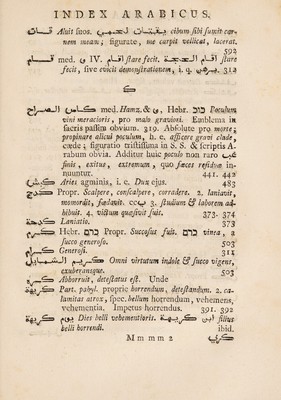 INDEX ARABICUS.
قات Aluit suos. يقتات لحمي cibum sibi sumit car-
nem meam; figurate, me carpit vellicat, lacerat.
502
قام med. و IV. اقام stare fecit. اقام الحجة stare
fecit, sive evicit demonstrationem, i. q. برهن. 312
ك
كاس med. Hamz. & و, Hebr. כוס Poculum
vini meracioris, pro malo graviori. Emblema in
sacris passim obvium. 319. Absolute pro morte;
propinare alicui poculum, h. e. afficere gravi clade,
cæde; figuratio tristissima in S. S. & scriptis A-
rabum obvia. Additur huic poculo non raro
finis, exitus, extremum, quo fæces residuæ in-
nuuntur. 441. 442
كبش Aries agminis, i. e. Dux ejus. 483
كدح Propr. Scalpere, conscalpere, corradere. 2. laniavit,
momordit, fodavit. 3. studium & laborem ad-
hibuit. 4. victum quæsivit suis. 373. 374
Laniatio. 373
كرم Hebr. כרם Propr. Succosus fuit. כרם vinea, a
succo generoso. 503
كرام Generosi. 311
كريم الشمايل Omni virtutum indole & succo vigens,
exuberansque. 503
كره Abhorruit, detestatus est. Unde
كريهة Part. pahyl. proprie horrendum, detestandum. 2. ca-
lamitas atrox, spec. bellum horrendum, vehemens,
vehementia. Impetus horrendus. 391. 392
يوم كريهة Dies belli vehementioris. ابن كريهة filius
belli horrendi. ibid.
M m m m 2